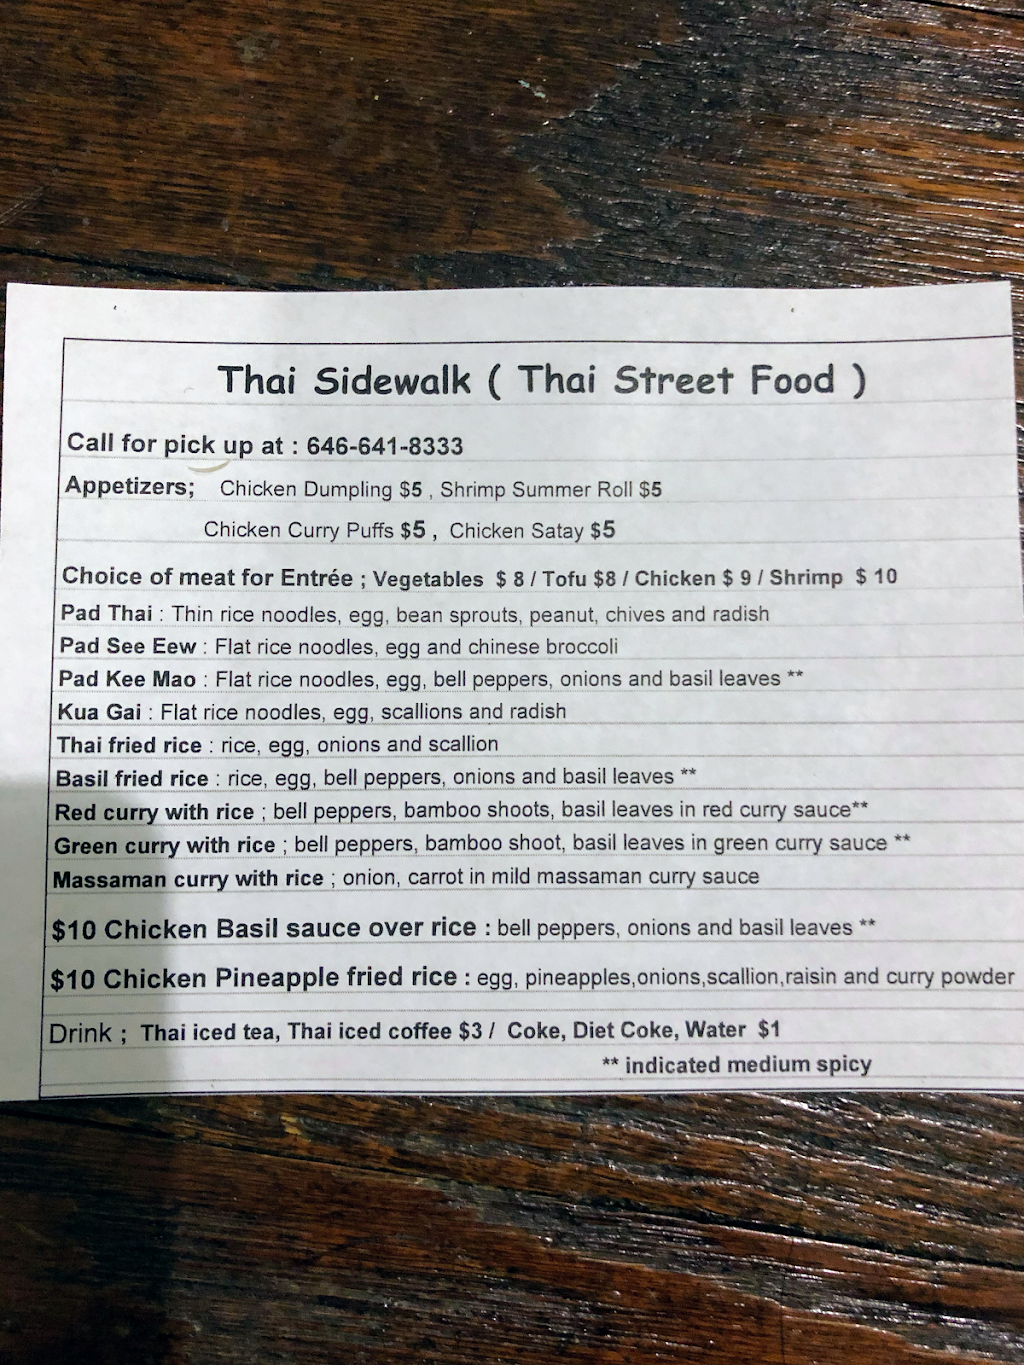 Thai Sidewalk ( Thai Street Food )
Call for pick up at : 646-641-8333
Appetizers; Chicken Dumpling $5 , Shrimp Summer Roll $5
Chicken Curry Puffs $5 , Chicken Satay $5
Choice of meat for Entrée ; Vegetables $ 8 / Tofu $8 / Chicken $ 9 / Shrimp $ 10
Pad Thai : Thin rice noodles, egg, bean sprouts, peanut, chives and radish
Pad See Eew : Flat rice noodles, egg and chinese broccoli
Pad Kee Mao : Flat rice noodles, egg, bell peppers, onions and basil leaves **
Kua Gai : Flat rice noodles, egg, scallions and radish
Thai fried rice : rice, egg, onions and scallion
Basil fried rice : rice, egg, bell peppers, onions and basil leaves **
Red curry with rice ; bell peppers, bamboo shoots, basil leaves in red curry sauce**
Green curry with rice ; bell peppers, bamboo shoot, basil leaves in green curry sauce **
Massaman curry with rice ; onion, carrot in mild massaman curry sauce
$10 Chicken Basil sauce over rice : bell peppers, onions and basil leaves **
$10 Chicken Pineapple fried rice : egg, pineapples,onions,scallion,raisin and curry powder
Drink ; Thai iced tea, Thai iced coffee $3 / Coke, Diet Coke, Water $1
** indicated medium spicy